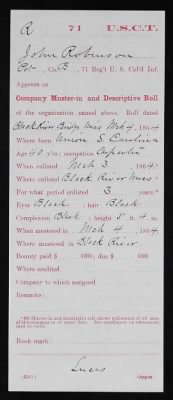 R 71 U.S.C.T.
John Robinson
Pvt., Co. B, 71 Reg't U. S. Col'd Inf.
Appears on
Company Muster-in and Descriptive Roll
of the organization named above. Roll dated
Black River Bridge Miss Mch 4, 1864
Where born Union S. Carolina
Age 40 y'rs; occupation Carpenter
When enlisted Mch 3, 1864.
Where enlisted Black River Miss
For what period enlisted 3 years.*
Eyes Black; hair Black
Complexion Black; height 5 ft. 4 in.
When mustered in Mch 4, 1864.
Where mustered in Black River
Bounty paid $ 100; due $ 100
Where credited
Company to which assigned
Remarks:
Book mark:
(351)